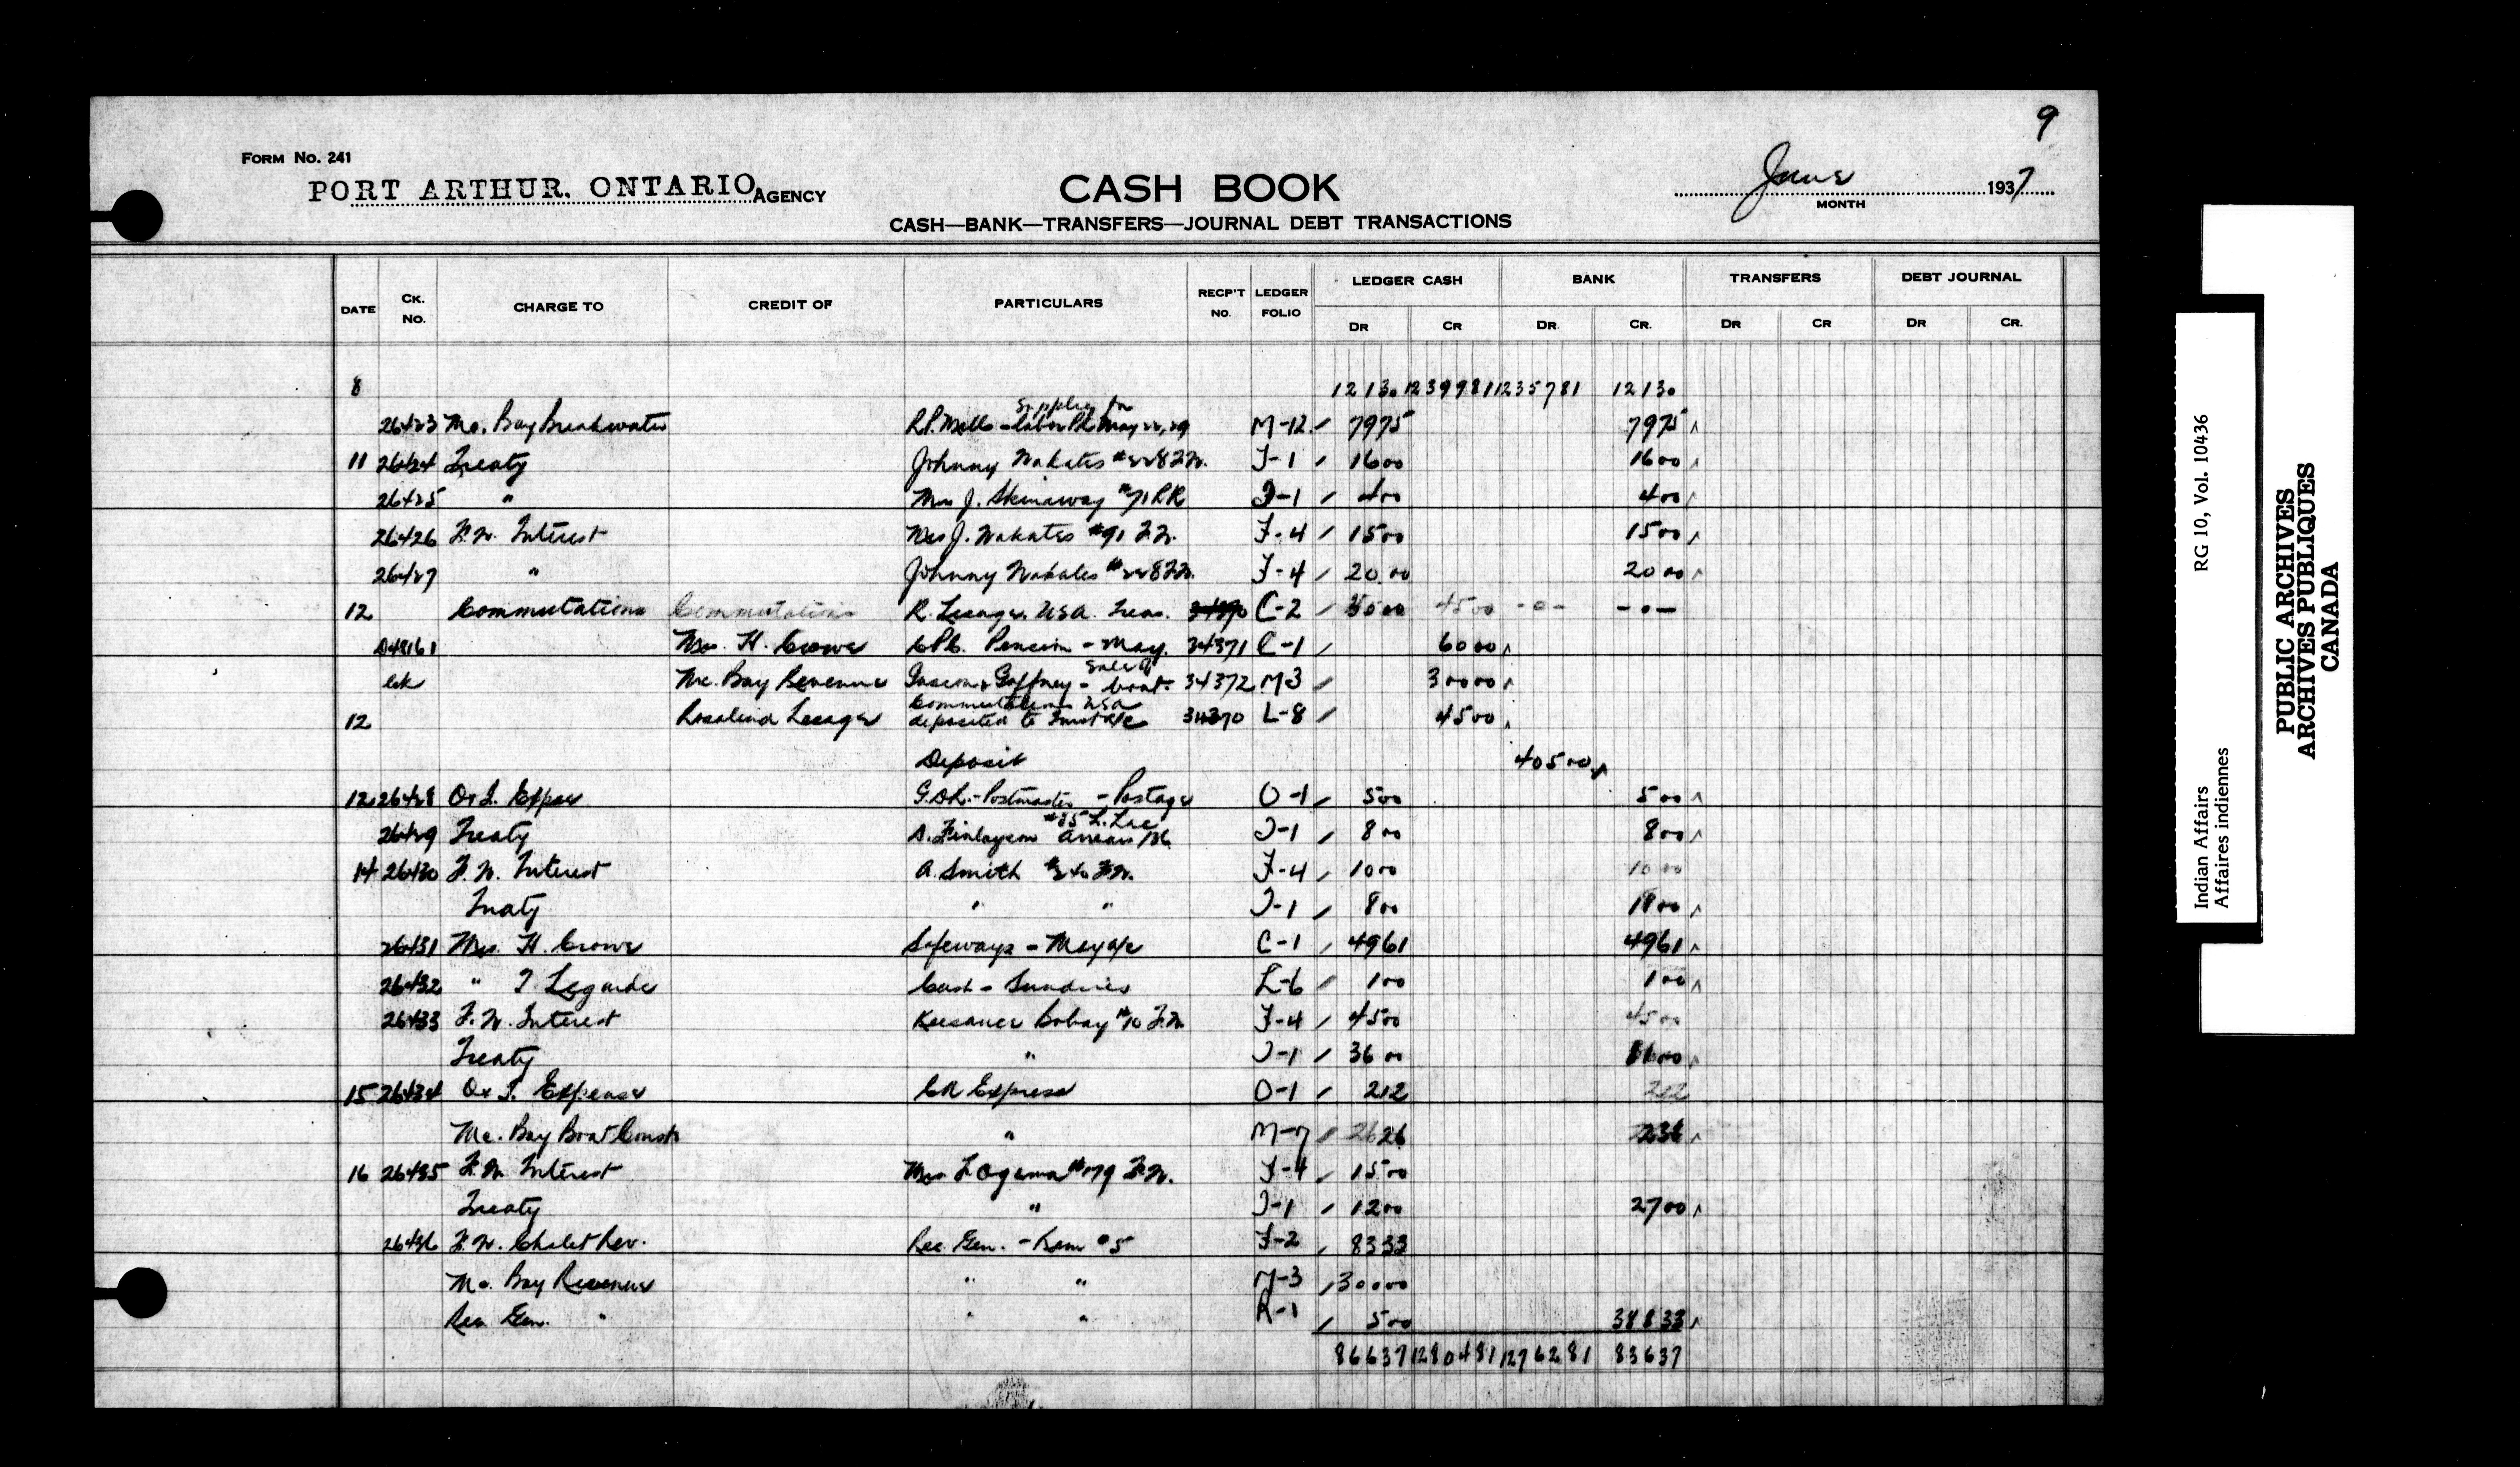 9
FORM NO. 241
PORT ARTHUR, ONTARIO AGENCY
CASH BOOK
June 1937
MONTH
CASH—BANK—TRANSFERS—JOURNAL DEBT TRANSACTIONS
DATE CK. NO. CHARGE TO CREDIT OF PARTICULARS RECP'T NO. LEDGER FOLIO LEDGER CASH BANK TRANSFERS DEBT JOURNAL
DR CR DR. CR. DR CR DR CR.
8 12130 1239981 1235781 12130
26423 Mc. Bay Breakwater R.P. Mills - Supplies for labor PL May 22, 29 M-12 7975 7975
11 26424 Treaty Johnny Wakates #228 F.W. T-1 1600 1600
26425 " Mrs J. Skinaway #71 RR T-1 400 400
26426 F.W. Interest Mrs J. Wakates #91 F.W. F-4 1500 1500
26427 " Johnny Wakates #228 F.W. F-4 2000 2000
12 Commutations Commutations R. Lesage, USA. Treas. 34370 C-2 4500 -0- -0-
D48161 Mrs. H. Crowe C.P.C. Pension - May. 34371 C-1 6000
ck Mc. Bay Revenue Gaffney - Sale of boat. 34372 M3 30000
12 Rosalind Lesage Commutations USA deposited to 34370 L-8 4500
Deposit 40500
12 26428 O & I. Expse Postmaster - Postage O-1 500 500
26429 Treaty D. Finlayson #85 L. Lac arrears T-1 800 800
14 26430 F.W. Interest A. Smith F.W. F-4 1000 1000
Treaty " " T-1 800 1800
26431 Mrs. H. Crowe Safeways - May a/c C-1 4961 4961
26432 " T. Legarde Cash - Sundries L-6 100 100
26433 F.W. Interest Keesance Bobay #10 F.W. F-4 4500 4500
Treaty " T-1 3600 8100
15 26434 O & I. Expense CN Express O-1 212 212
Mc. Bay Boat Const " M-7 26 238
16 26435 F.W. Interest Mrs F. Ogema #179 F.W. F-4 1500
Treaty " T-1 1200 2700
26436 F.W. Chalet Rev. Rec. Gen. - Rem #5 F-2 8333
Mc. Bay Revenue " " M-3 30000
Rec Gen. " " " R-1 500 38833
86637 1280481 1276281 83637
Indian Affairs RG 10, Vol. 10436
Affaires indiennes
PUBLIC ARCHIVES
ARCHIVES PUBLIQUES
CANADA